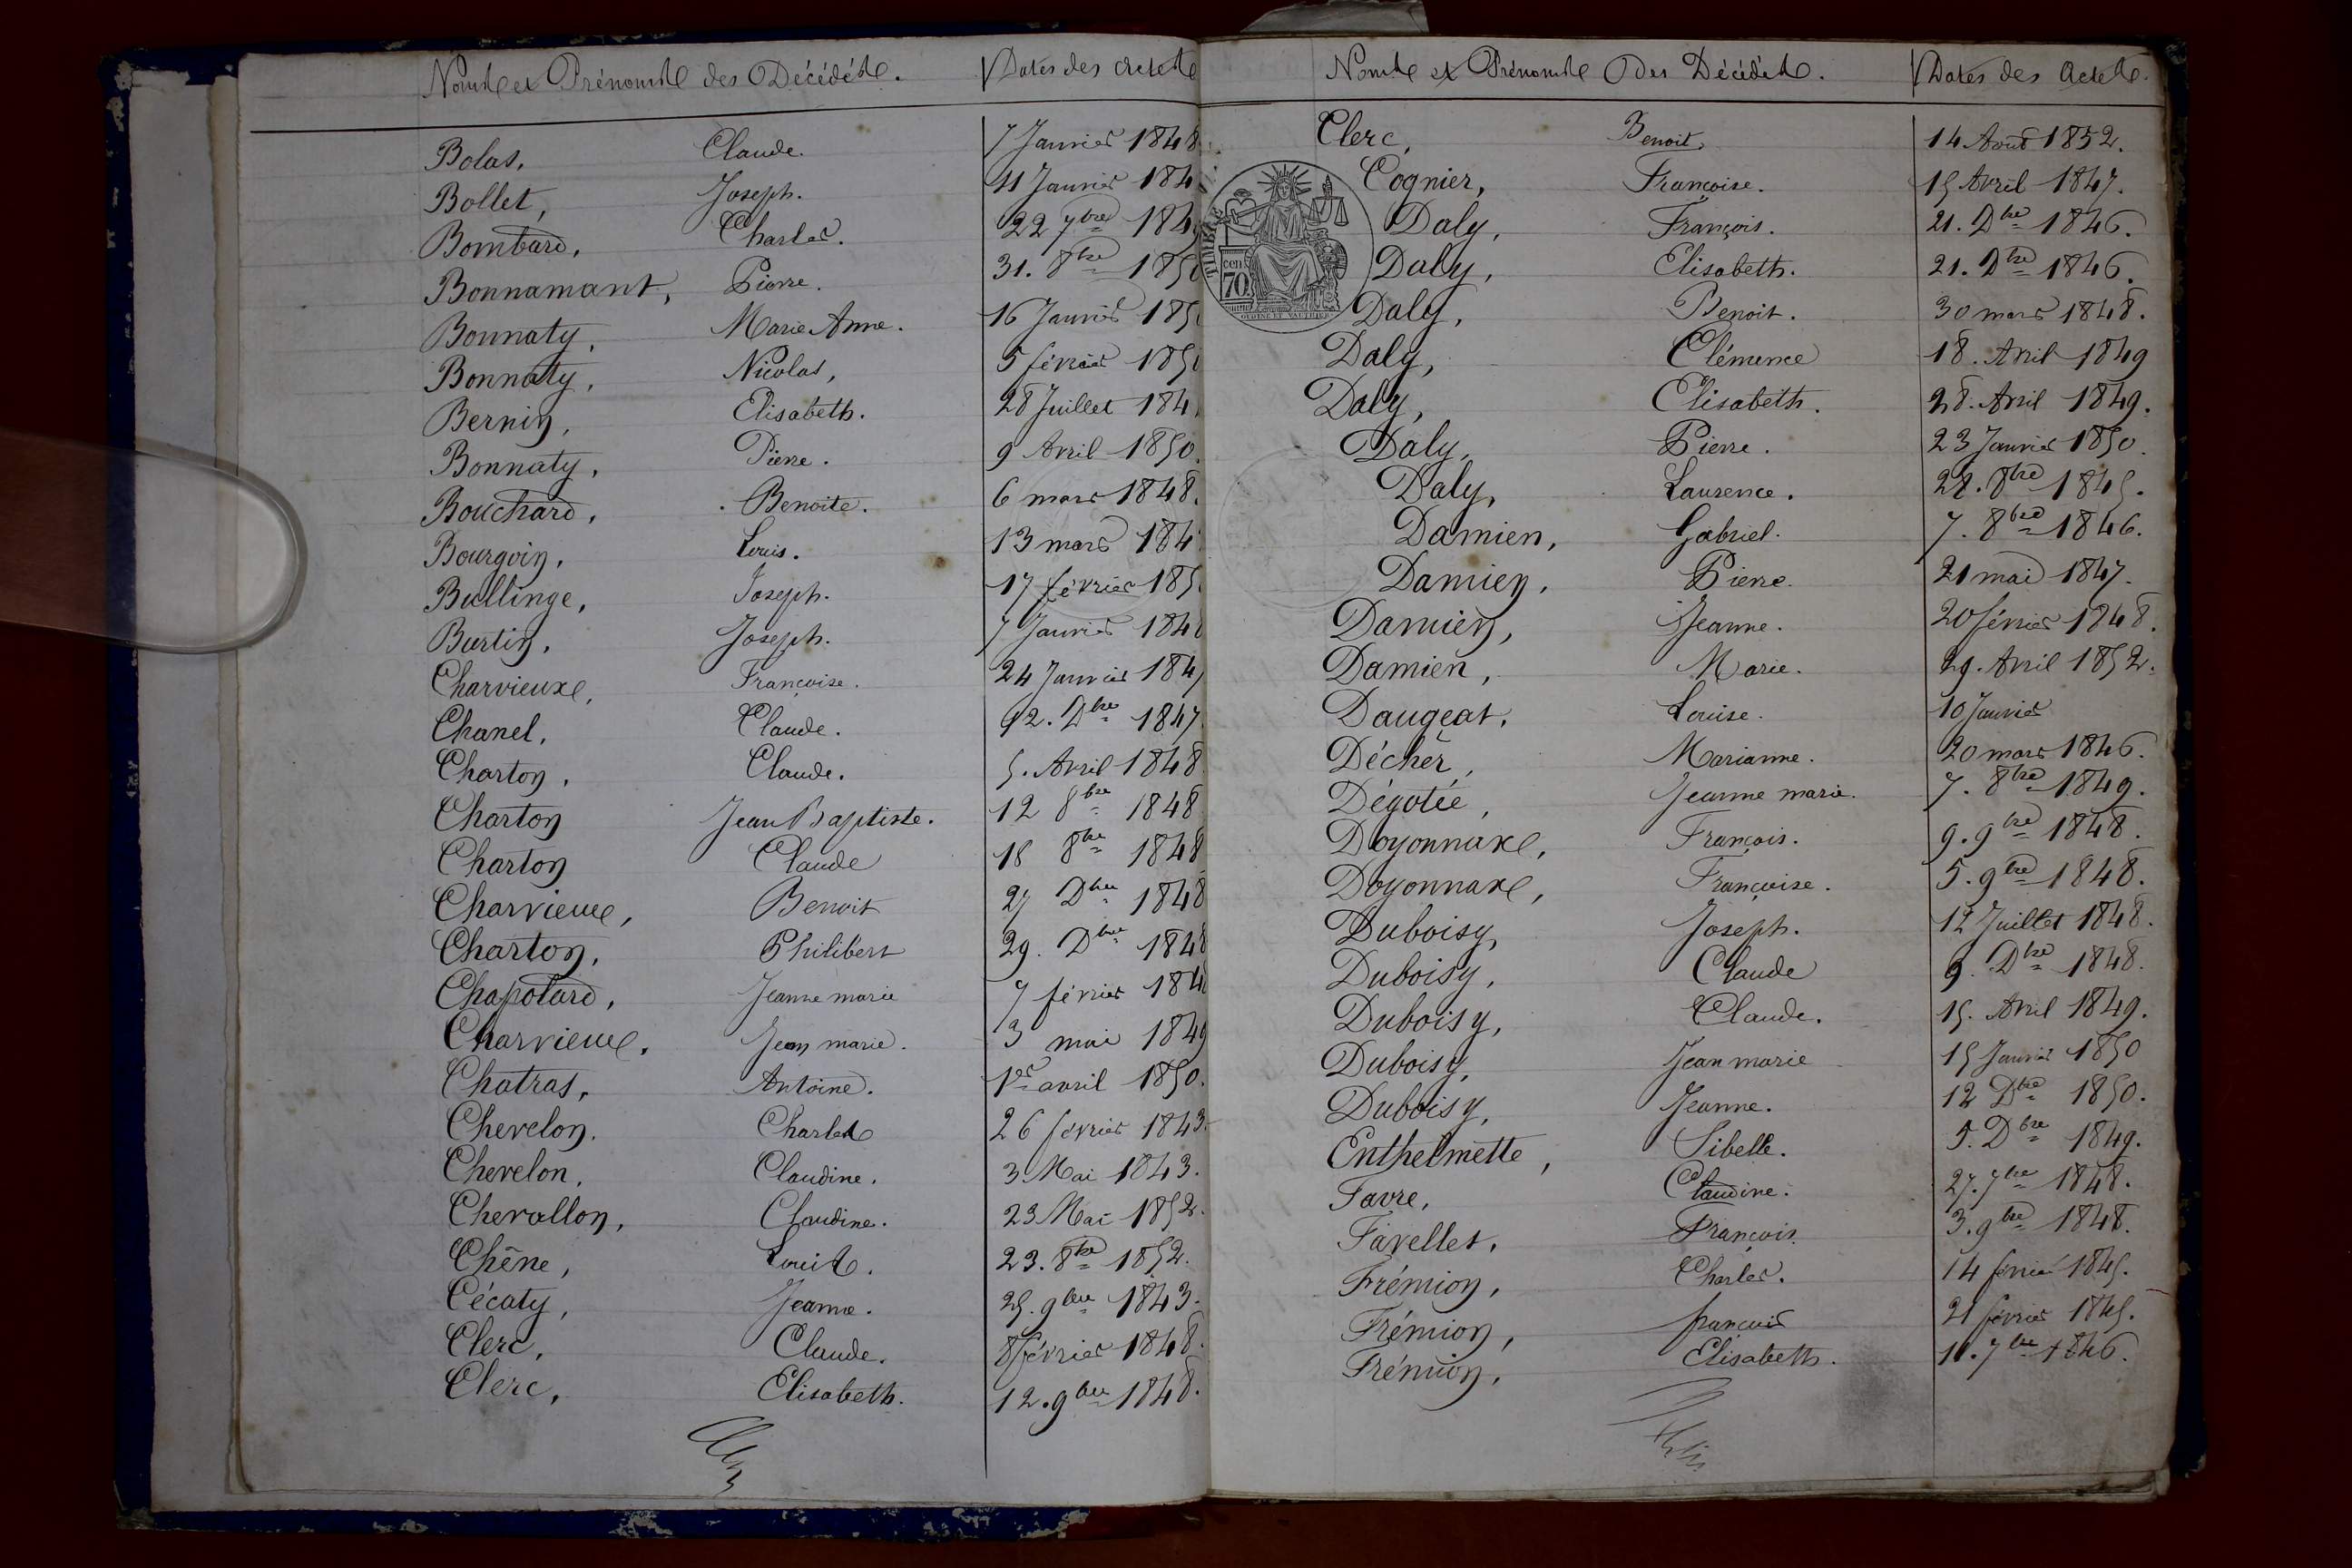 Noms et Prénoms des Décédés. Dates des Actes
Bolas, Claude. 7 Janvier 1848
Bollet, Joseph. 11 Janvier 184
Bombard, Charles. 22 7bre 184
Bonnamant, Pierre. 31. 8bre 185
Bonnaty, Marie Anne. 16 Janvier 185
Bonnaty, Nicolas, 5 février 185
Bernin, Elisabeth. 28 Juillet 184
Bonnaty, Pierre. 9 Avril 1850.
Bouchard, Benoite. 6 mars 1848.
Bourgoin, Louis. 13 mars 184
Bullinge, Joseph. 17 février 185
Burtin, Joseph. 7 Janvier 184
Charvieux, Françoise. 24 Janvier 184
Chanel, Claude. 12. Dbre 1847.
Charton, Claude. 5. Avril 1848
Charton Jean Baptiste. 12 8bre 1848
Charton Claude 18 8bre 1848
Charvieux, Benoit 27 Dbre 1848
Charton, Philibert 29. Dbre 1848
Chapotard, Jeanne marie 7 février 184
Charvieux, Jean marie. 3 mai 1849
Chatras, Antoine. 1er avril 1850.
Chevelon. Charles 26 février 1843.
Chevelon, Claudine. 3 Mai 1843.
Chevallon, Claudine. 23 Mai 1852.
Chêne, Louis. 23. 8bre 1852.
Cécaty, Jeanne. 25. 9bre 1843.
Clerc, Claude. 8 février 1848.
Clerc, Elisabeth. 12. 9bre 1848.
Noms et Prénoms Des Décédés. Dates des Actes.
Clerc, Benoit, 14 Août 1852.
Cognier, Françoise. 15 Avril 1847.
TIMBRE
cent
70
Daly, François. 21. Dbre 1846.
Daly, Elisabeth. 21. Dbre 1846.
Daly, Benoit. 30 mars 1848.
Daly, Clémence 18. Avril 1849
Daly, Elisabeth. 28. Avril 1849.
Daly, Pierre. 23 Janvier 1850.
Daly, Laurence. 28. 8bre 1845.
Damien, Gabriel. 7. 8bre 1846.
Damien, Pierre. 21 mai 1847.
Damien, Jeanne. 20 février 1848.
Damien, Marie. 29. Avril 1852.
Daugeat, Louise. 10 Janvier
Décher, Marianne. 20 mars 1846.
Dégotée, Jeanne marie. 7. 8bre 1849.
Doyonnaxe, François. 9. 9bre 1848.
Doyonnaxe, Françoise. 5. 9bre 1848.
Duboisy, Joseph. 12 Juillet 1848.
Duboisy, Claude 9. Dbre 1848.
Duboisy, Claude. 15. Avril 1849.
Duboisy, Jean marie 15 Janvier 1850
Duboisy, Jeanne. 12 Dbre 1850.
Enthelmette, Sibelle. 5. Dbre 1849.
Favre, Claudine. 27. 7bre 1848.
Favellet, François. 3. 9bre 1848.
Frémion, Charles. 14 février 1845.
Frémion, françois 21 février 1845.
Frémion, Elisabeth. 11. 7bre 1846.